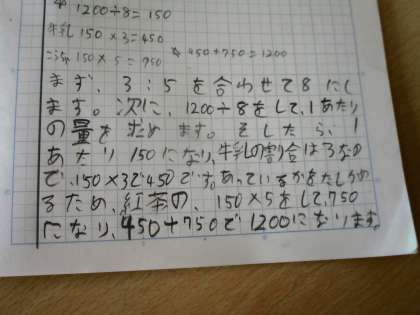 1200÷8=150
牛乳 150×3=450
150×5=750 450+750=1200
まず、3:5を合わせて8にし
ます。次に、1200÷8をして、1あたり
の量を求めます。そしたら、1
あたり150になり、牛乳の割合は3なの
で、150×3で450です。あっているかをたしかめ
るため、紅茶の、150×5をして、750
になり、450+750で1200になります。